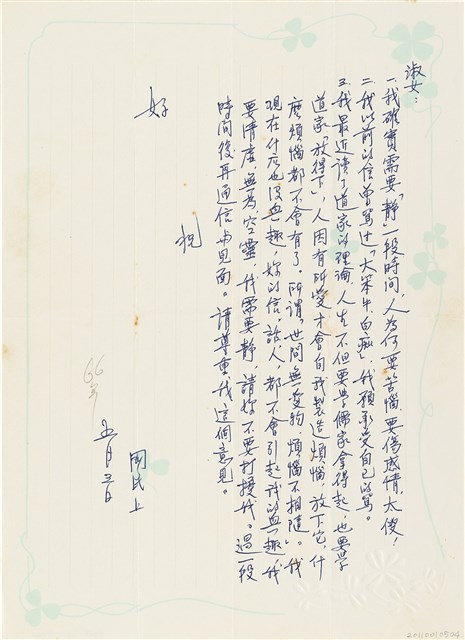 淑女：
一、我確實需要「静」一段時間，人為何要苦惱，要傷感情，太傻！
二、我以前以信曾罵过「大笨牛，白痴」，我願承受自己以罵。
三、我最近讀了道家以理論，人生不但要学儒家拿得起，也要学
道家「放得下」，人因有所愛才會自我製造煩惱，放下它，什
麽煩惱都不會有了。所謂「世間無愛物，煩惱不相隨」。我
現在什么也没興趣，妳以信、話、人，都不會引起我以興趣，我
要清虛，無為空靈，我需要静，請妳不要打擾我。過一段
時間後再通信与見面。請尊重我這個意見。
祝
好
國民上
五月三日
66年
20110010524